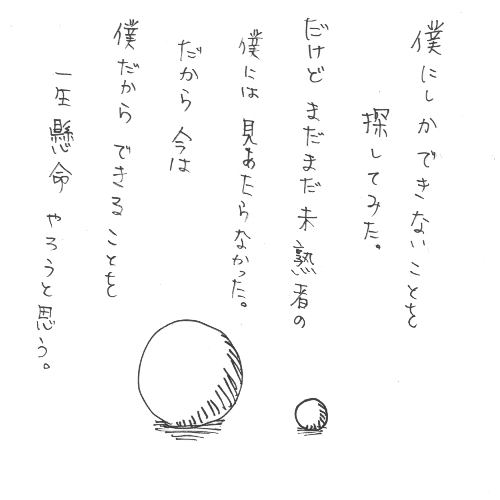 僕にしかできないことを
探してみた。
だけど まだまだ 未熟者の
僕には 見あたらなかった。
だから 今は
僕だから できる ことを
一生懸命 やろうと思う。